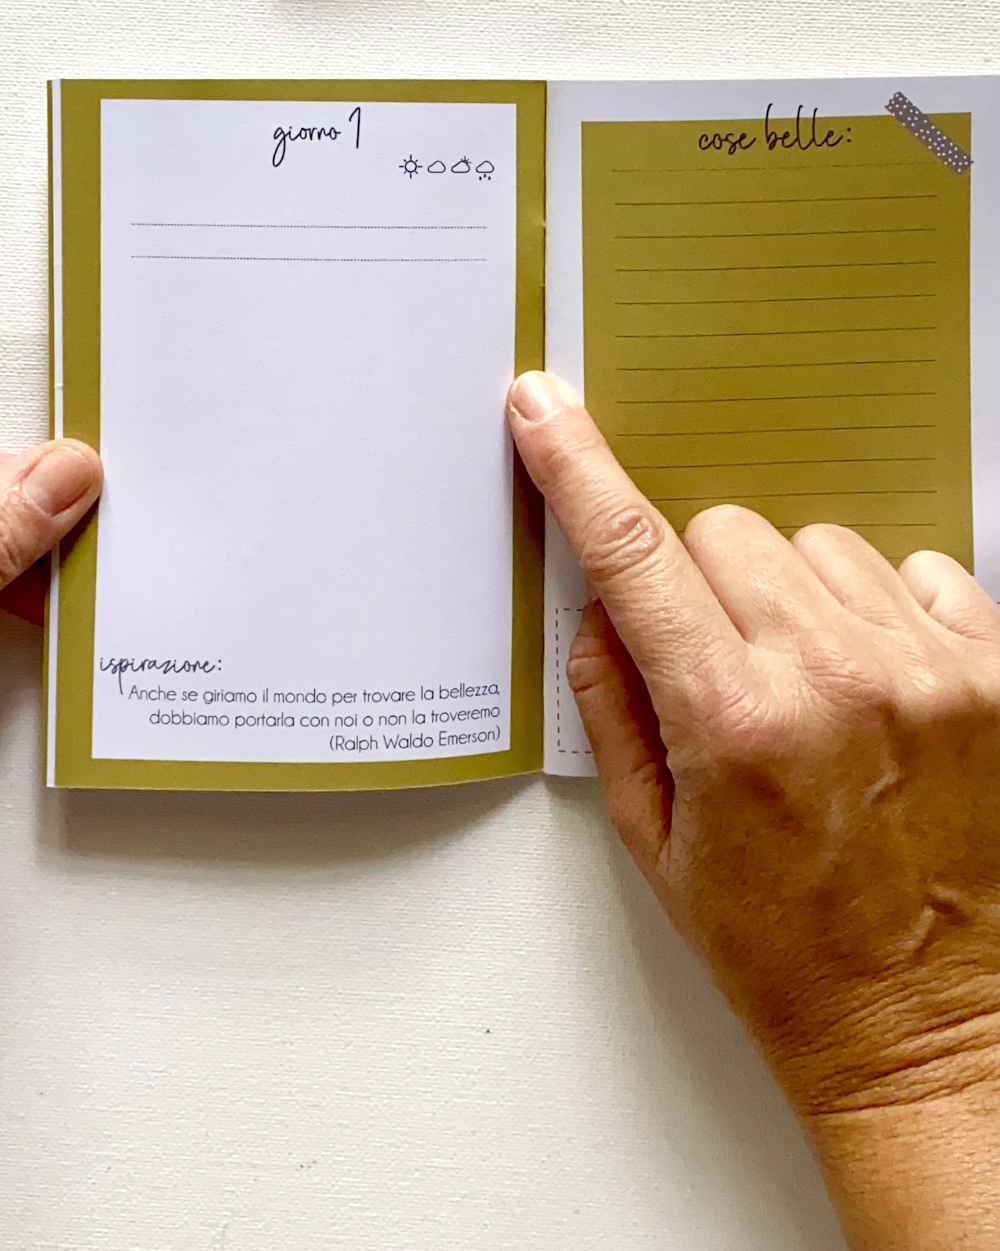 giorno 1
ispirazione:
Anche se giriamo il mondo per trovare la bellezza,
dobbiamo portarla con noi o non la troveremo
(Ralph Waldo Emerson)
cose belle: